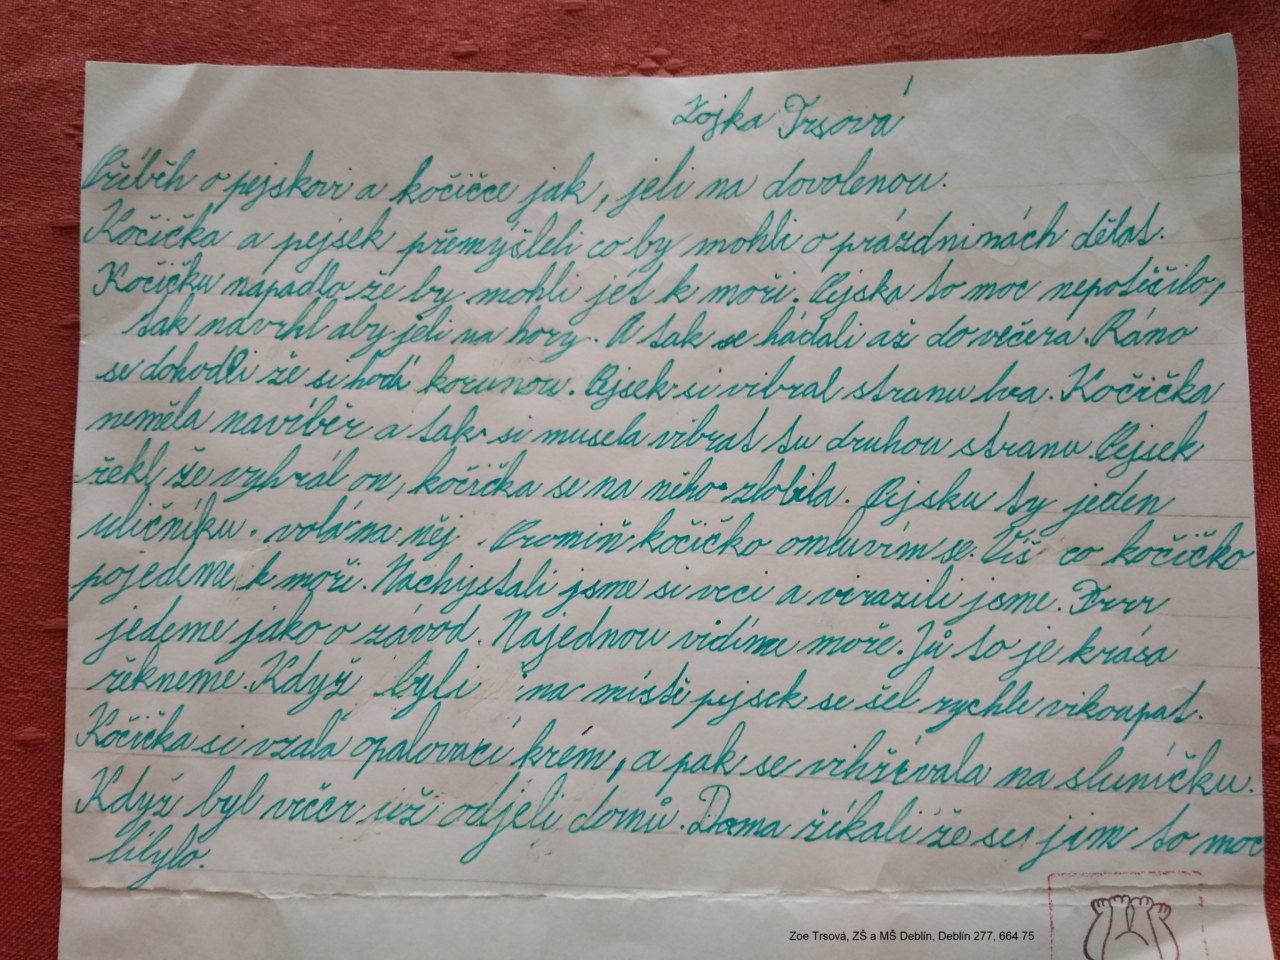 Zojka Trsová
Příběh o pejskovi a kočičce jak, jeli na dovolenou.
Kočička a pejsek přemýšleli co by mohli o prázdninách dělat.
Kočičku napadlo že by mohli jet k moři. Pejska to moc nepotěčilo,
tak navrhl aby jeli na hory. A tak se hádali až do večera. Ráno
se dohodli že si hodí korunou. Pejsek si vibral stranu lva. Kočička
neměla navíběr a tak si musela vibrat tu druhou stranu. Pejsek
řekl že vyhrál on, kočička se na něho zlobila. Pejsku ty jeden
uličníku. volá na něj. Promiň kočičko omluvím se. Víš co kočičko
pojedeme k moři. Nachystali jsme si veci a virazili jsme. Frrr
jedeme jako o závod. Najednou vidíme moře. Jů to je krása
řekneme. Když byli na místě pejsek se šel rychle vikoupat.
Kočička si vzala opalovací krém, a pak se vihřívala na sluníčku.
Když byl večer už odjeli domů. Doma říkali že se jim to moc
líbylo.
Zoe Trsová, ZŠ a MŠ Deblín, Deblín 277, 664 75